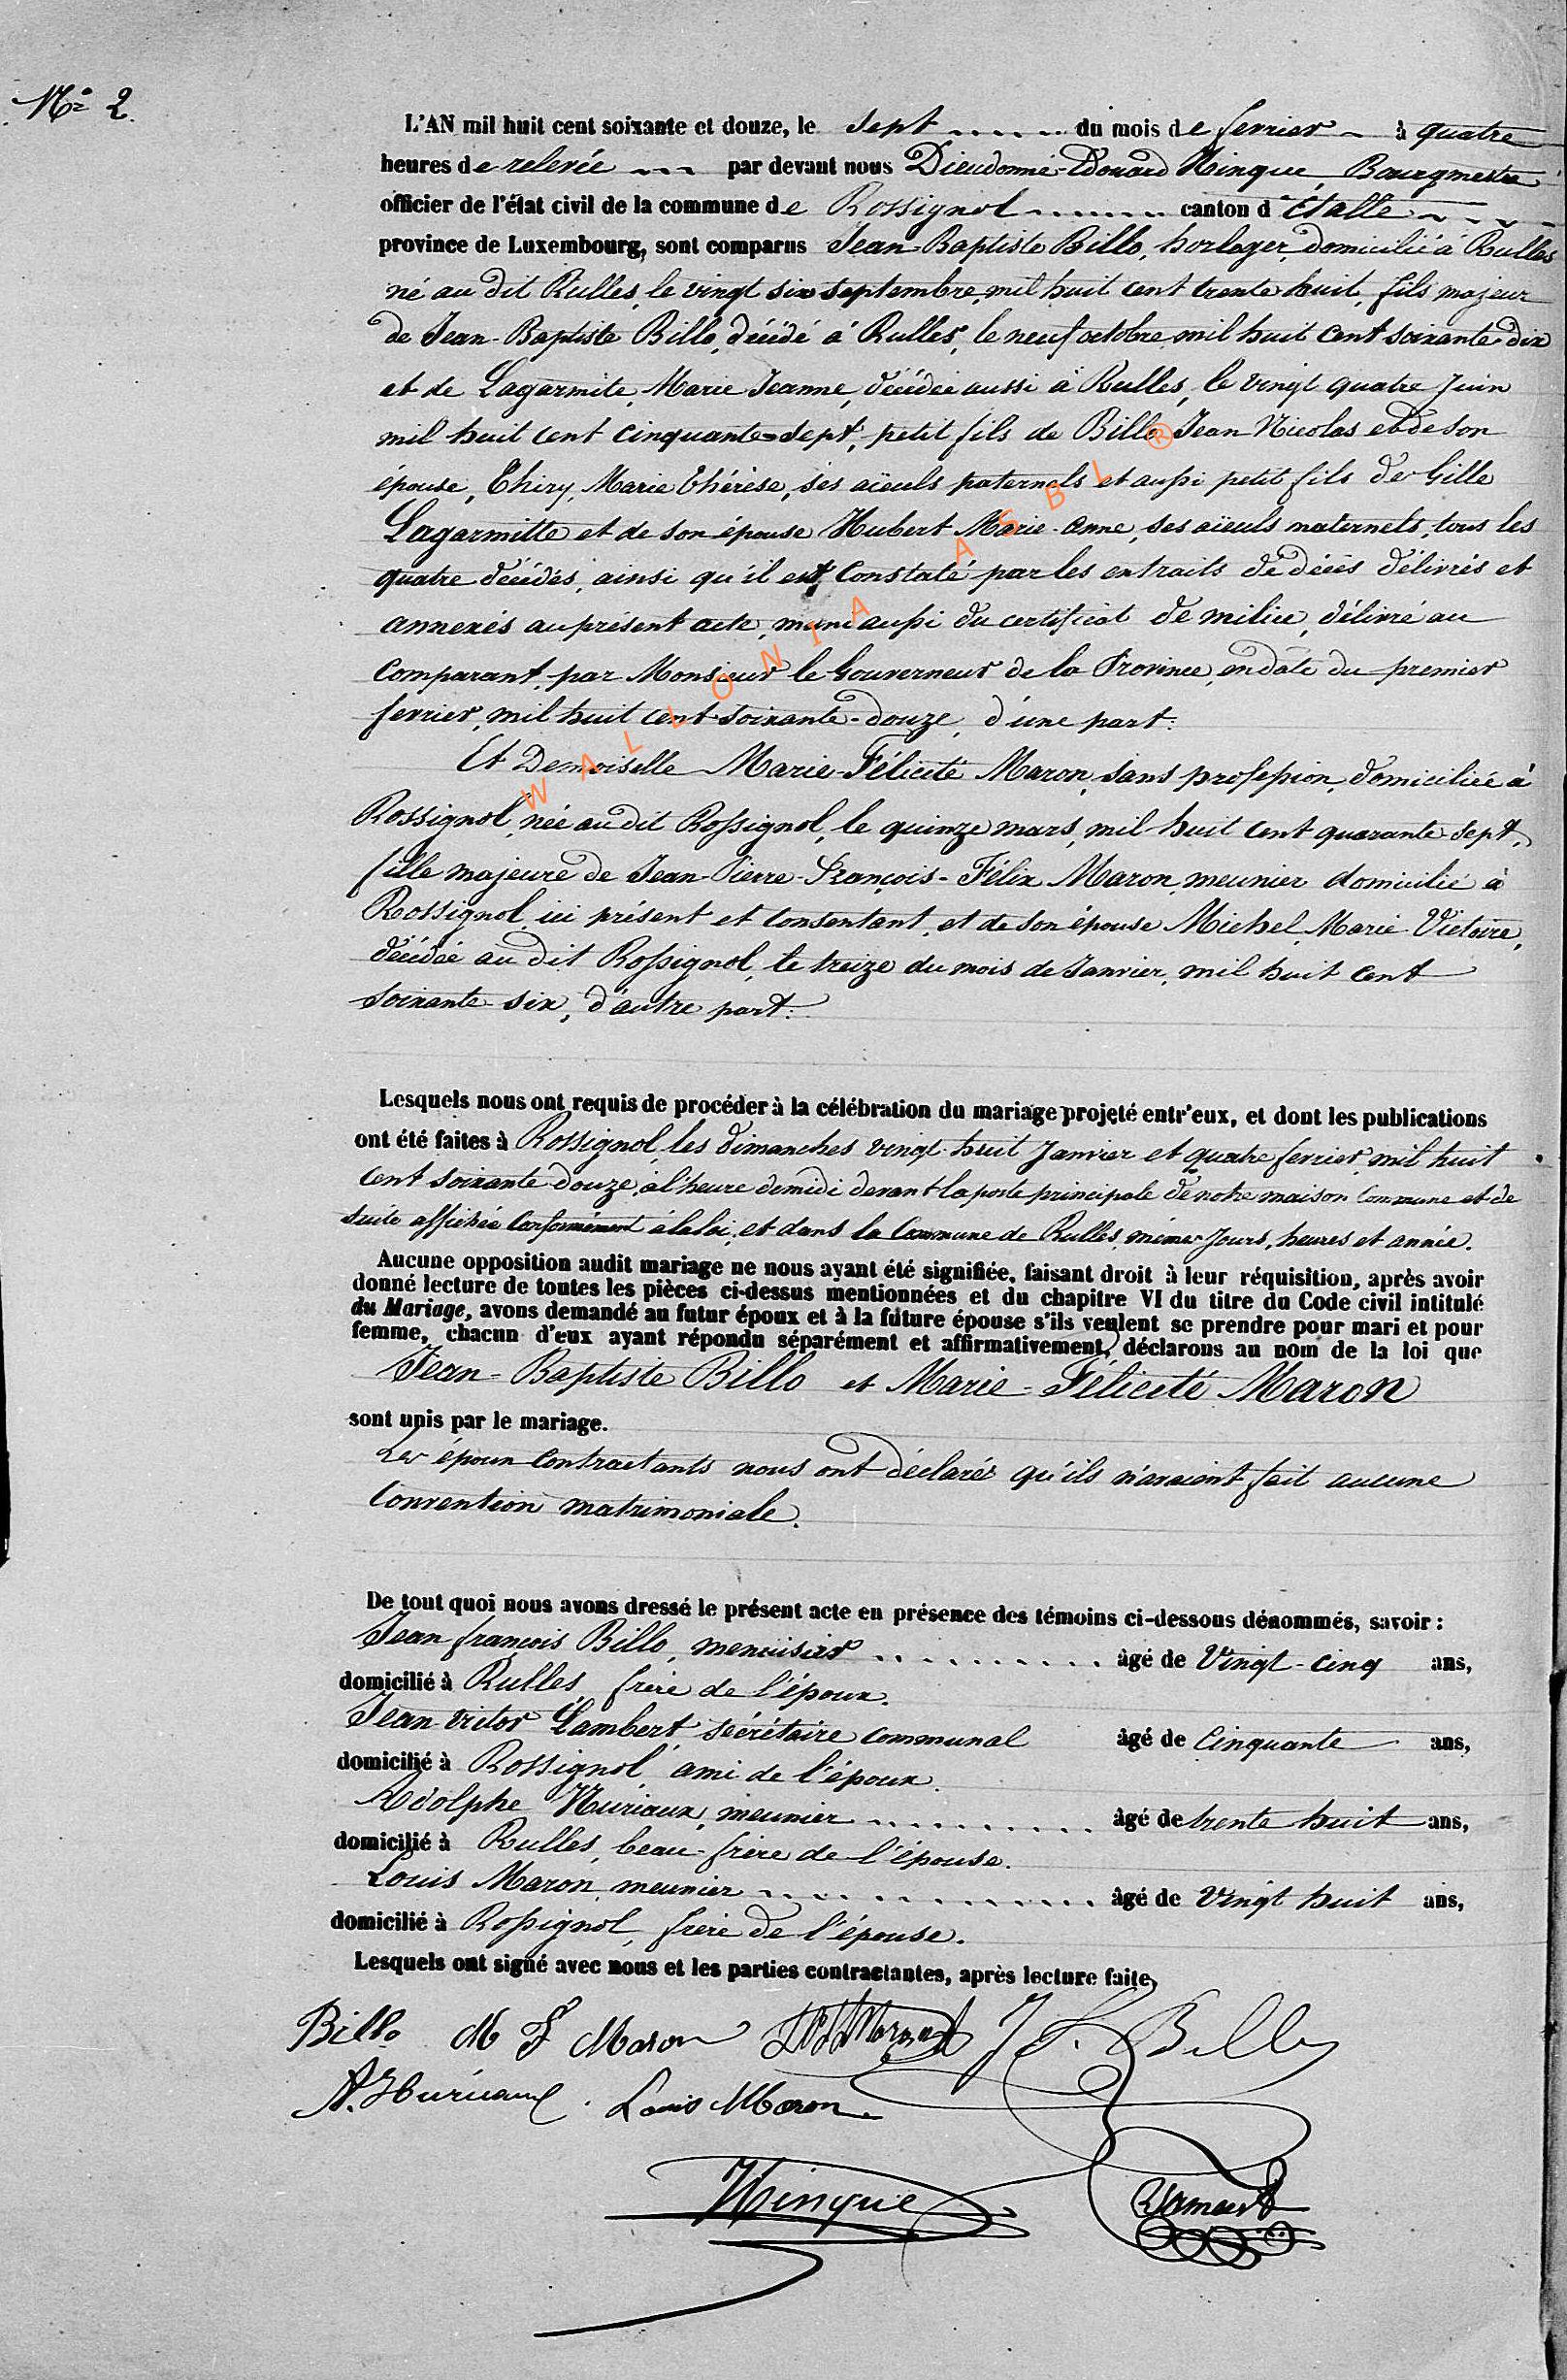 N° 2.
L'AN mil huit cent soixante et douze, le sept du mois de fevrier à quatre
heures de relevée par devant nous Dieudonné-Edouard Hinque, Bourgmestre
officier de l'état civil de la commune de Rossignol canton d'Etalle
province de Luxembourg, sont comparus Jean-Baptiste Billo, horloger, domicilié à Rulles
né au dit Rulles, le vingt six septembre, mil huit cent trente huit, fils majeur
de Jean-Baptiste Billo, décédé à Rulles, le neuf octobre mil huit cent soixante dix
et de Lagarmite, Marie Jeanne, décédée aussi à Rulles, le vingt quatre Juin
mil huit cent cinquante-sept, petit fils de Billo Jean Nicolas et de son
épouse, Thiry, Marie Thérèse, ses aïeuls paternels et aussi petit fils de Gille
Lagarmitte et de son épouse Hubert Marie-Anne, ses aïeuls maternels, tous les
quatre décédés, ainsi qu'il est constaté par les extraits de décès délivrés et
annexés au présent acte, muni aussi du certificat de milice, délivré au
Comparant, par Monsieur le Gouverneur de la Province, en date du premier
fevrier, mil huit cent soixante-douze, d'une part:
Et Demoiselle Marie-Félicité Maron, sans profession, domiciliée à
Rossignol, née au dit Rossignol, le quinze mars, mil huit cent quarante sept,
fille majeure de Jean-Pierre-François-Félix Maron, meunier domicilié à
Rossignol, ici présent et consentant, et de son épouse Michel, Marie-Victoire,
décédée au dit Rossignol, le treize du mois de Janvier, mil huit cent
soixante-six, d'autre part:
Lesquels nous ont requis de procéder à la célébration du mariage projeté entr'eux, et dont les publications
ont été faites à Rossignol, les dimanches vingt-huit Janvier et quatre fevrier, mil huit
cent soixante-douze, à l'heure de midi devant la porte principale de notre maison Commune et de
suite affichée Conformément à la loi, et dans la Commune de Rulles, mêmes Jours, heures et année.
Aucune opposition audit mariage ne nous ayant été signifiée, faisant droit à leur réquisition, après avoir
donné lecture de toutes les pièces ci-dessus mentionnées et du chapitre VI du titre du Code civil intitulé
du Mariage, avons demandé au futur époux et à la future épouse s'ils veulent se prendre pour mari et pour
femme, chacun d'eux ayant répondu séparément et affirmativement, déclarons au nom de la loi que
Jean-Baptiste Billo et Marie-Félicité Maron
sont unis par le mariage.
Les époux Contractants nous ont déclarés qu'ils n'avaient fait aucune
Convention matrimoniale.
De tout quoi nous avons dressé le présent acte en présence des témoins ci-dessous dénommés, savoir :
Jean-françois Billo, menuisier âgé de Vingt-cinq ans,
domicilié à Rulles, frère de l'époux.
Jean Victor Lambert sécrétaire communal âgé de Cinquante ans,
domicilié à Rossignol ami de l'époux.
Adolphe Huriaux, meunier âgé de trente huit ans,
domicilié à Rulles, beau-frère de l'épouse.
Louis Maron, meunier âgé de Vingt huit ans,
domicilié à Rossignol, frère de l'épouse.
Lesquels ont signé avec nous et les parties contractantes, après lecture faite,
Billo M F Maron J F Billo
A. Huriaux. Louis Maron
Hinque
WALLONIA ASBL ®